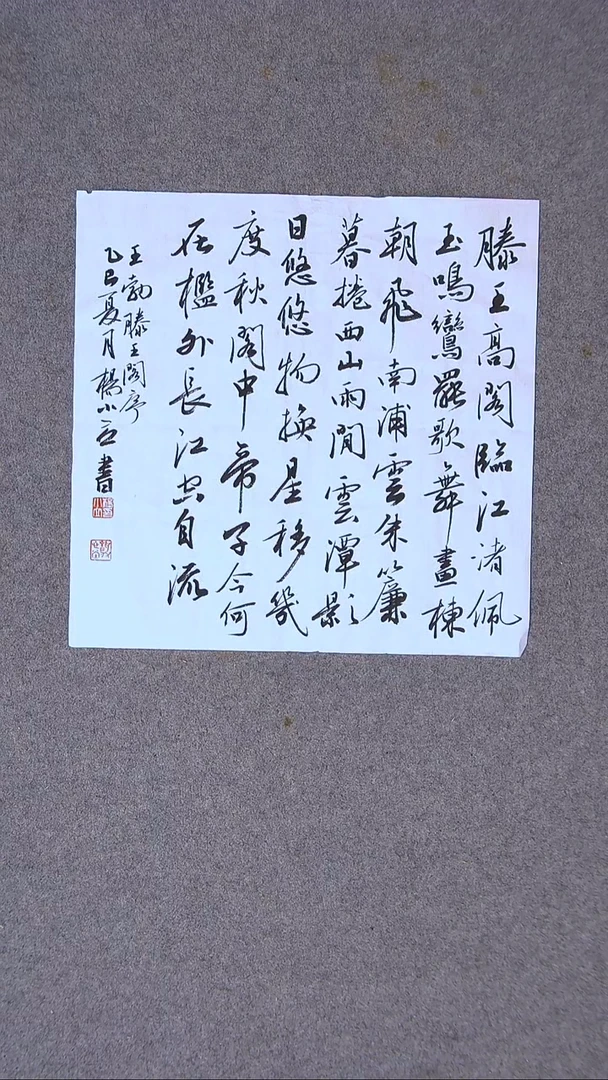 滕王高閣臨江渚佩
玉鳴鸞罷歌舞畫棟
朝飛南浦雲朱簾
暮捲西山雨閒雲潭影
日悠悠物換星移幾
度秋閣中帝子今何
在檻外長江空自流
王勃滕王閣序
乙巳夏月楊小書